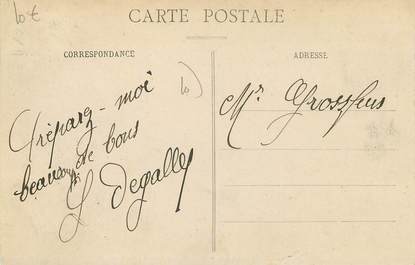 10€
CARTE POSTALE
CORRESPONDANCE
ADRESSE
10)
Préparez-moi
beaucoup de bons
J. Degalley
Mr. Grossfeus